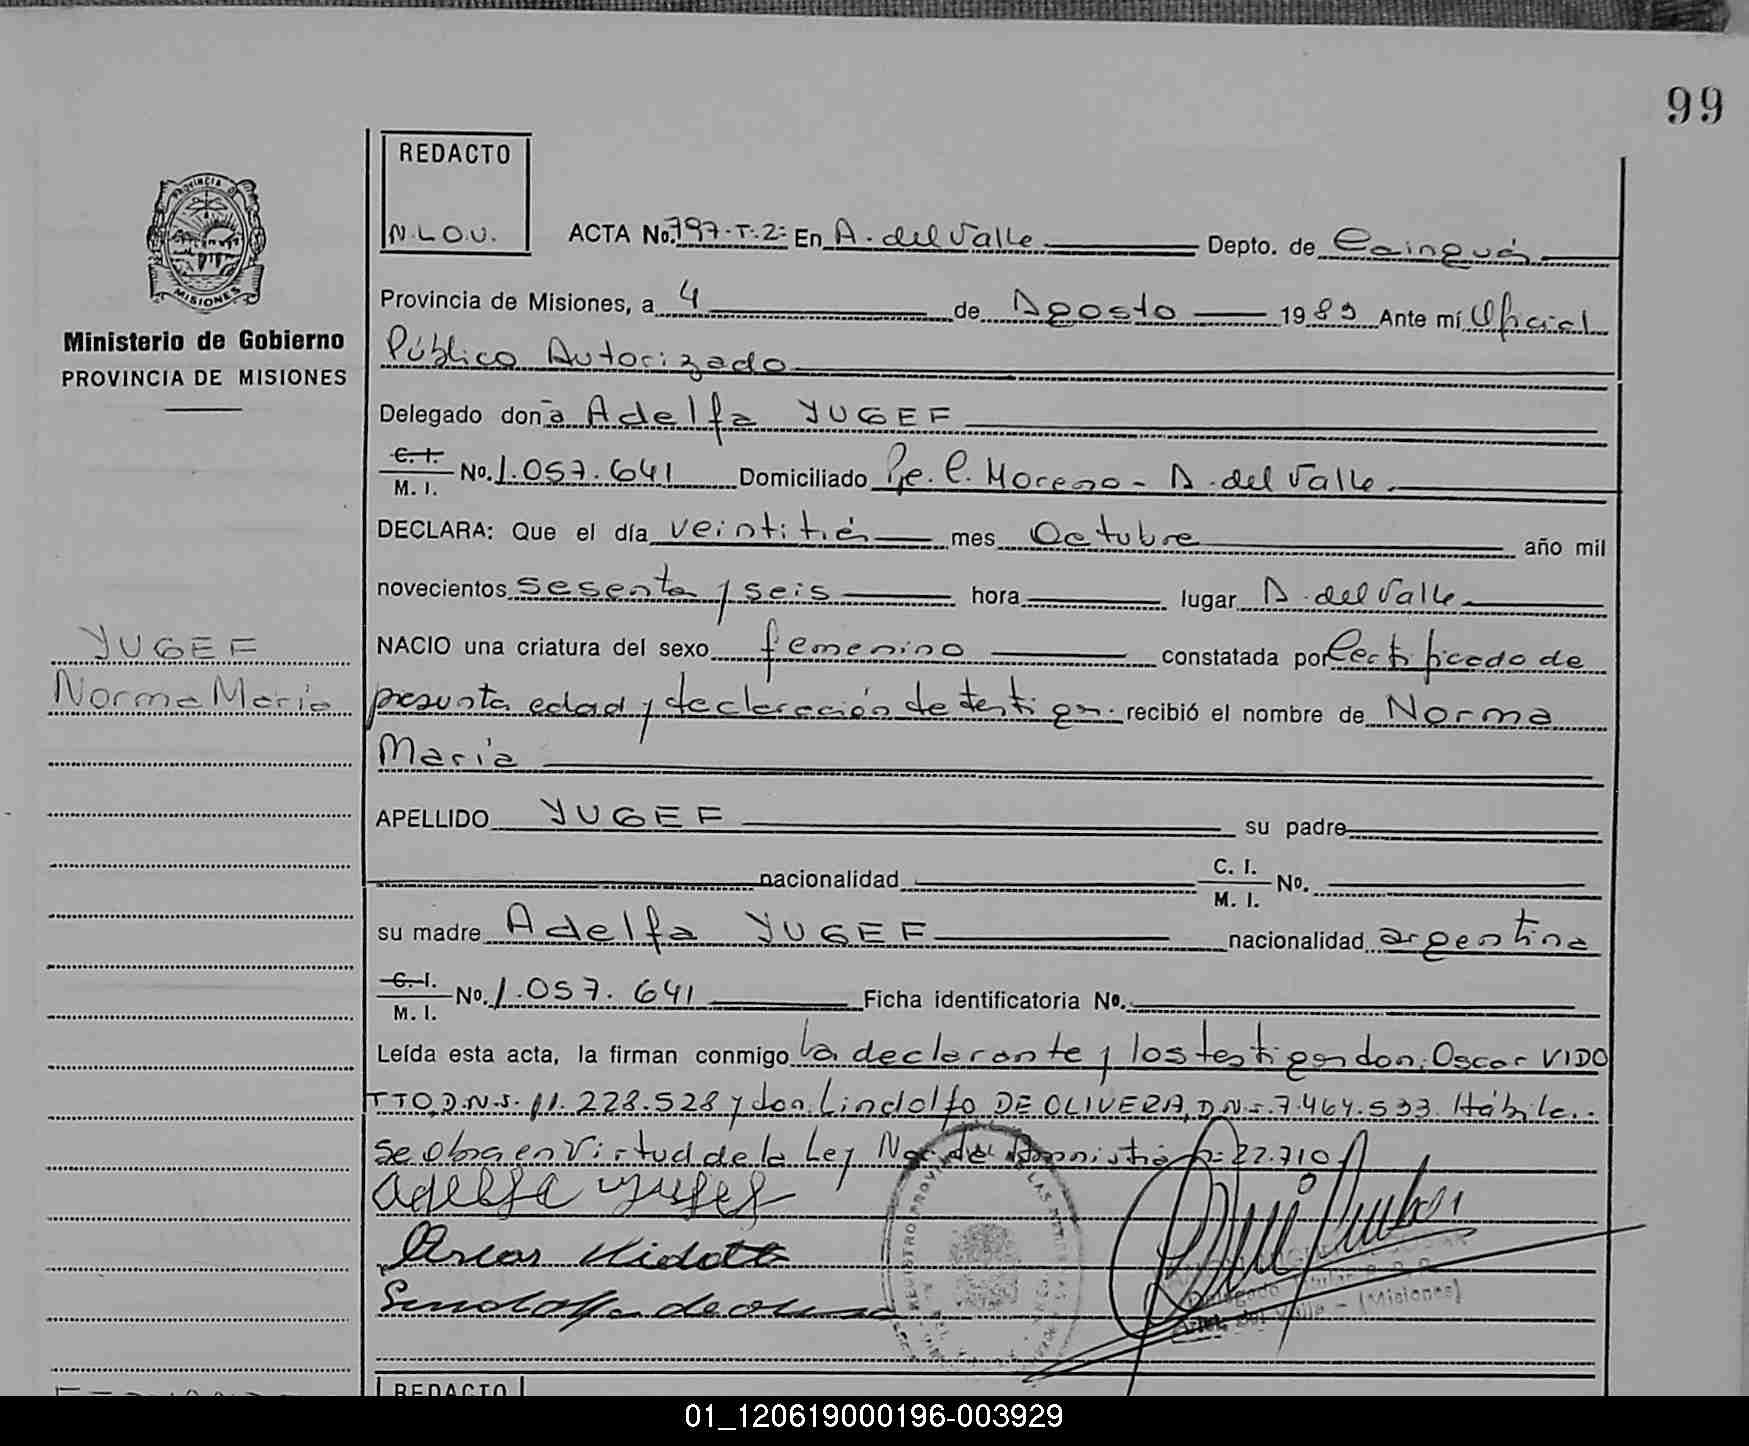 99
REDACTO
N.L.O.V.
ACTA No. 797-T-2: En A. del Valle Depto. de Cainguás
Provincia de Misiones, a 4 de Agosto 1983 Ante mí Oficial
Público Autorizado
Ministerio de Gobierno
PROVINCIA DE MISIONES
MISIONES
Delegado donã Adelfa YUGEF
C. I.
M. I. No. 1.057.641 Domiciliado Pje. C. Moreno - A. del Valle.
DECLARA: Que el día veintitrés mes Octubre año mil
novecientos sesenta y seis hora lugar A. del Valle
YUGEF
Norma María
NACIO una criatura del sexo femenino constatada por Certificado de
presunta edad y declaración de testigos. recibió el nombre de Norma
María
APELLIDO YUGEF su padre
nacionalidad C. I.
M. I. No.
su madre Adelfa YUGEF nacionalidad argentina
C. I.
M. I. No. 1.057.641 Ficha identificatoria No.
Leída esta acta, la firman conmigo la declarante y los testigos don: Oscar VIDO
TTO, D.N.I. 11.228.528 y don Lindolfo DE OLIVERA, D.N.I. 7.464.533. Hábiles.
Se obra en Virtud de la Ley Nac. de Amnistía 22.710
Adelfa Yugef
Oscar Vidotto
Lindolfo de Olivera
Valle - (Misiones)
REDACTO
01_120619000196-003929